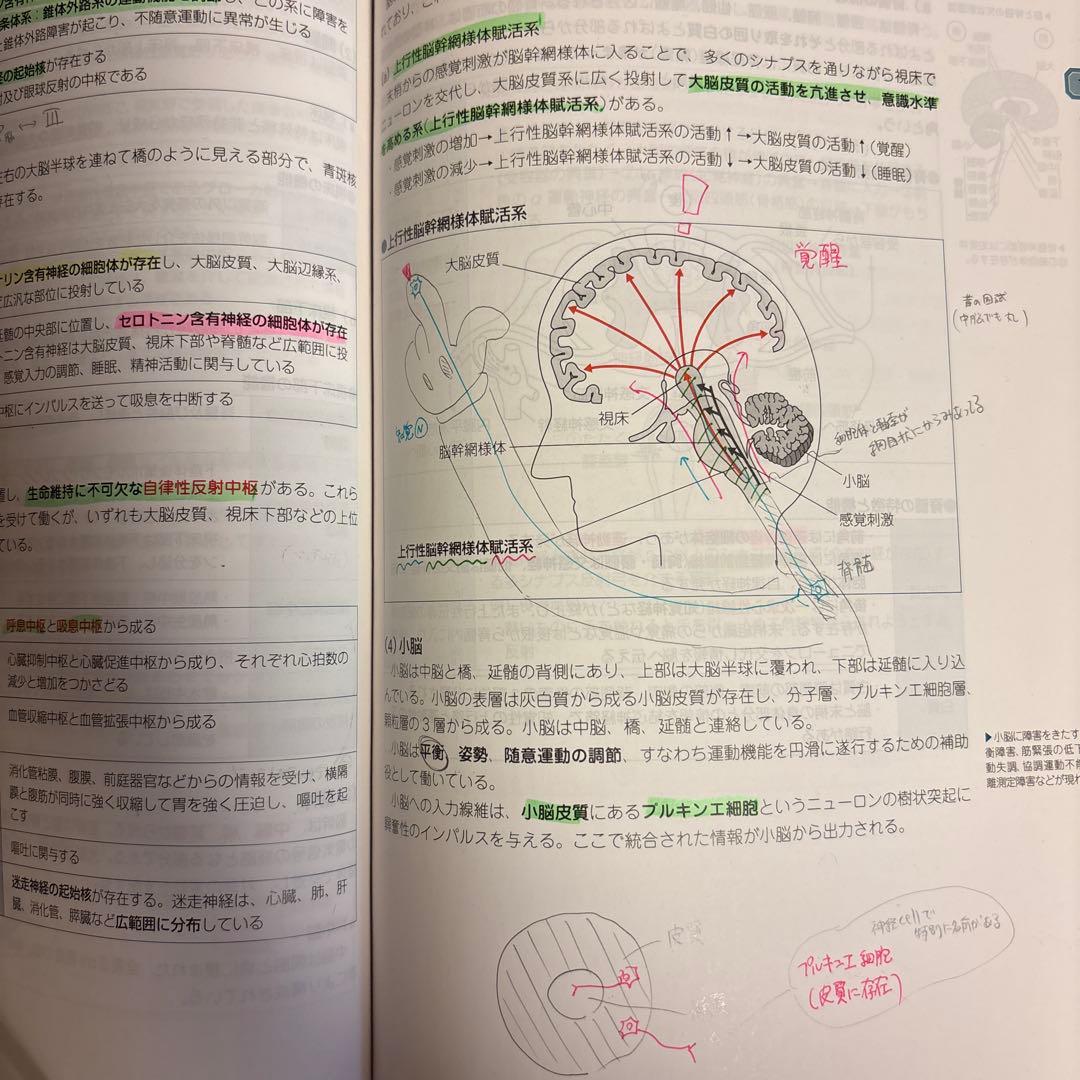 条体系：錐体外路系の運動機能を調節し、この系に障害を
錐体外路障害が起こり、不随意運動に異常が生じる
の起始核が存在する
及び眼球反射の中枢である
↔ Ⅲ
左右の大脳半球を連ねて橋のように見える部分で、青斑核
存在する。
リン含有神経の細胞体が存在し、大脳皮質、大脳辺縁系、
広汎な部位に投射している
延髄の中央部に位置し、セロトニン含有神経の細胞体が存在
トニン含有神経は大脳皮質、視床下部や脊髄など広範囲に投
感覚入力の調節、睡眠、精神活動に関与している
中枢にインパルスを送って吸息を中断する
置し、生命維持に不可欠な自律性反射中枢がある。これら
を受けて働くが、いずれも大脳皮質、視床下部などの上位
ている。
呼息中枢と吸息中枢から成る
心臓抑制中枢と心臓促進中枢から成り、それぞれ心拍数の
減少と増加をつかさどる
血管収縮中枢と血管拡張中枢から成る
消化管粘膜、腹膜、前庭器官などからの情報を受け、横隔
膜と腹筋が同時に強く収縮して胃を強く圧迫し、嘔吐を起
こす
嘔吐に関与する
迷走神経の起始核が存在する。迷走神経は、心臓、肺、肝
臓、消化管、膵臓など広範囲に分布している
(a) 上行性脳幹網様体賦活系
末梢からの感覚刺激が脳幹網様体に入ることで、多くのシナプスを通りながら視床で
ニューロンを交代し、大脳皮質系に広く投射して大脳皮質の活動を亢進させ、意識水準
を高める系(上行性脳幹網様体賦活系)がある。
・感覚刺激の増加→上行性脳幹網様体賦活系の活動↑→大脳皮質の活動↑(覚醒)
・感覚刺激の減少→上行性脳幹網様体賦活系の活動↓→大脳皮質の活動↓(睡眠)
●上行性脳幹網様体賦活系
大脳皮質
覚醒
昔の国試
(中脳でも丸)
視床
知覚N
脳幹網様体
細胞体と軸索が
網目状にからみあってる
小脳
感覚刺激
上行性脳幹網様体賦活系
脊髄
(4) 小脳
小脳は中脳と橋、延髄の背側にあり、上部は大脳半球に覆われ、下部は延髄に入り込
んでいる。小脳の表層は灰白質から成る小脳皮質が存在し、分子層、プルキンエ細胞層、
顆粒層の３層から成る。小脳は中脳、橋、延髄と連絡している。
小脳は平衡、姿勢、随意運動の調節、すなわち運動機能を円滑に遂行するための補助
役として働いている。
小脳への入力線維は、小脳皮質にあるプルキンエ細胞というニューロンの樹状突起に
興奮性のインパルスを与える。ここで統合された情報が小脳から出力される。
▶小脳に障害をきたす
衡障害、筋緊張の低下
動失調、協調運動不能
離測定障害などが現れ
皮質
髄質
神経cellで
特別に名前がある
プルキンエ細胞
(皮質に存在)